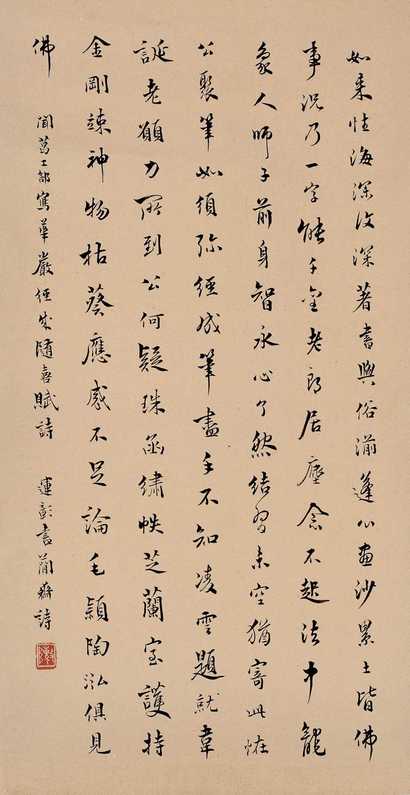 如來性海深復深著書與俗湔蓬心畫沙累土皆佛
事況乃一字能千金老郎居塵念不起法中龍
象人師子前身智永心了然結習未空猶寄此恠
公聚筆如須彌經成筆盡手不知凌雲題就韋
誕老願力所到公何疑珠函繡帙芝蘭室護持
金剛竦神物枯葵應感不足論毛穎陶泓俱見
佛
聞葛工部寫華嚴經成隨喜賦詩 運彰書簡齋詩